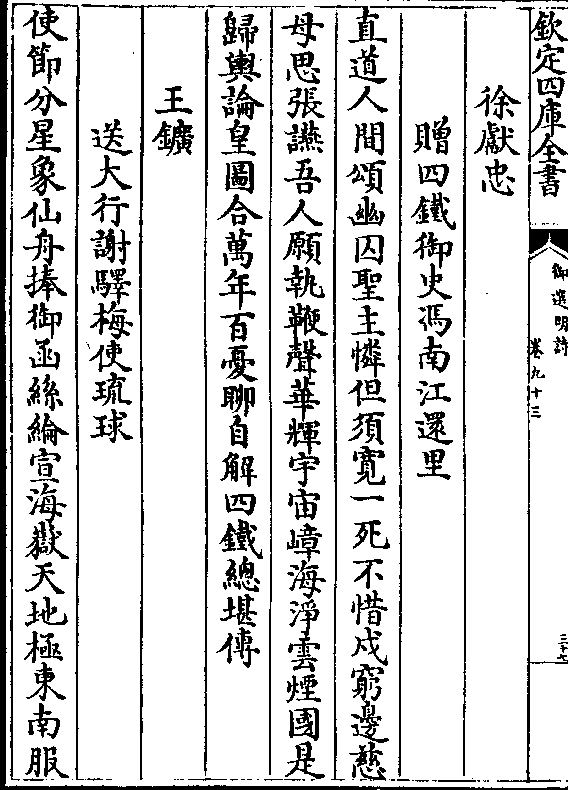 欽定四庫全書
御選明詩
卷九十三
徐獻忠
贈四鐵御史馮南江還里
直道人間頌幽囚聖主憐但須寛一死不惜戍窮邊慈
母思張讌吾人願執鞭聲華輝宇宙嶂海淨雲煙國是
歸輿論皇圖合萬年百憂聊自解四鐵總堪傳
王鑛
送大行謝驛梅使琉球
使節分星象仙舟捧御函絲綸宣海嶽天地極東南服